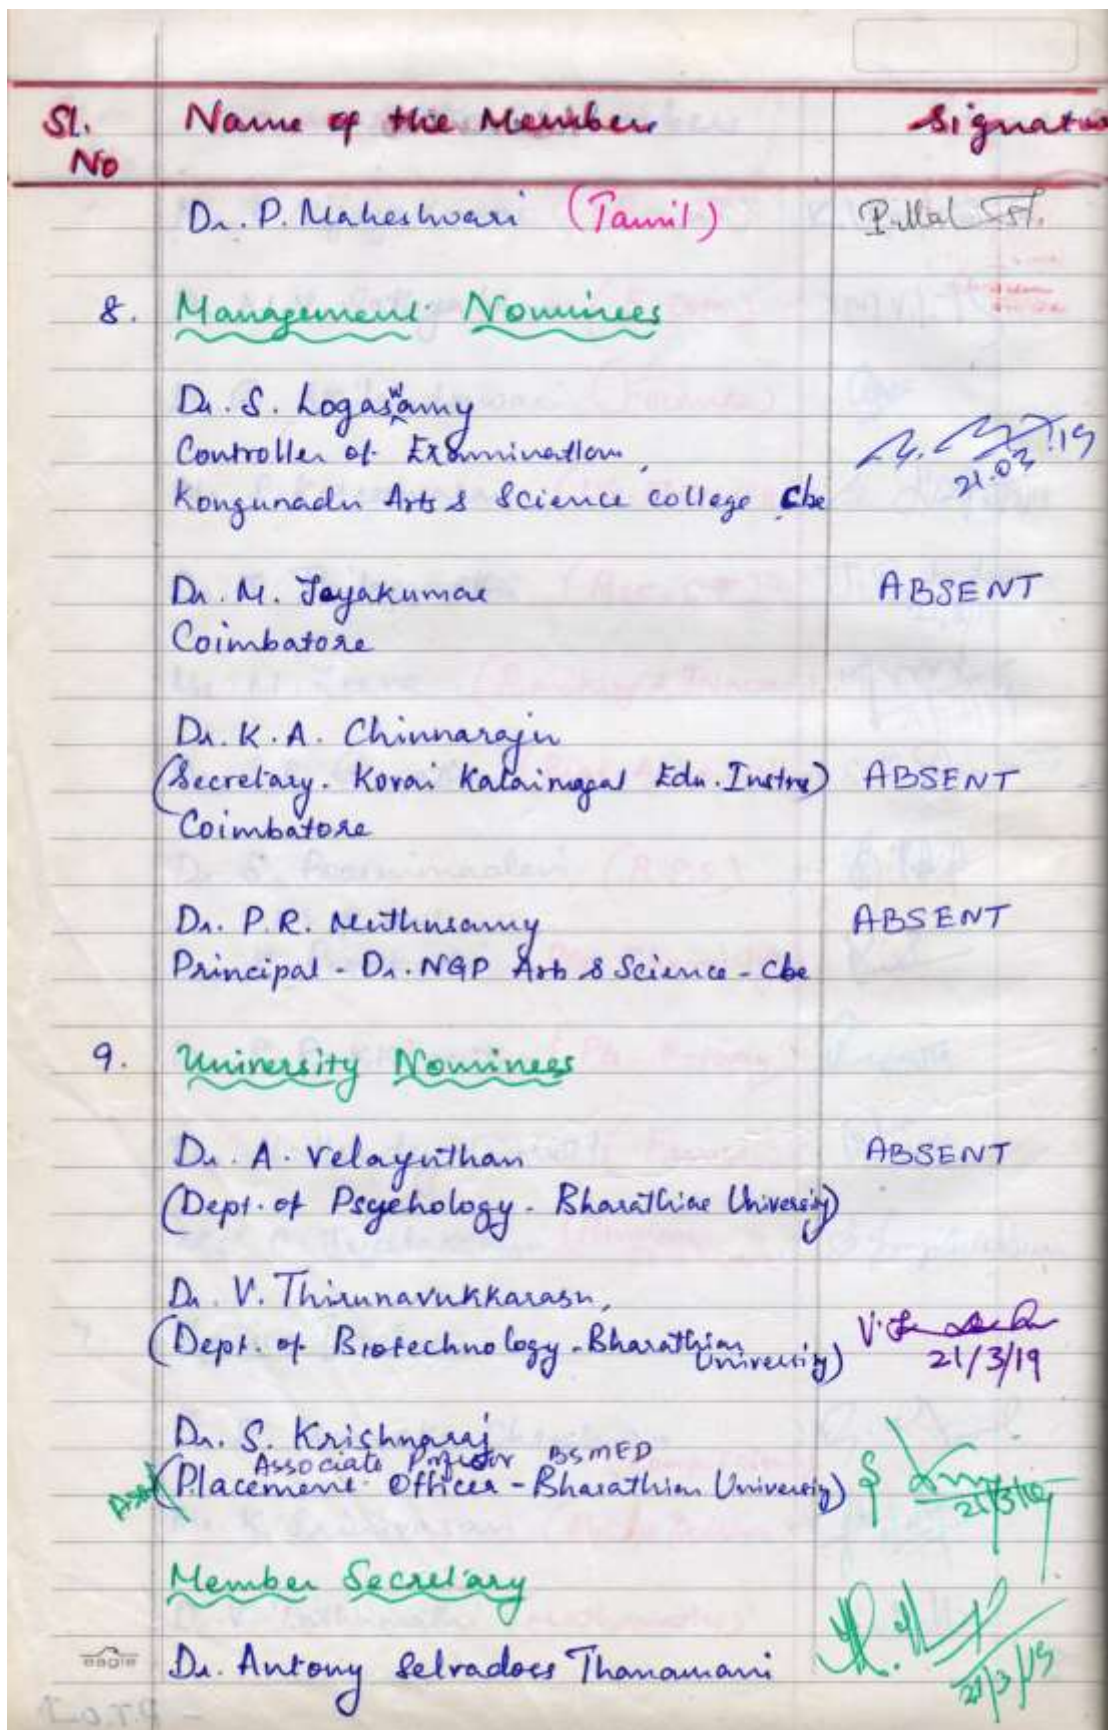 Sl. Name of the Member Signatu
No
Dr. P. Maheshwari (Tamil)
8. Management Nominees
Dr. S. Logaswamy
Controller of Examination,
Kongunadu Arts & Science college Cbe
21.03.19
Dr. M. Jayakumar ABSENT
Coimbatore
Dr. K.A. Chinnaraju
(Secretary. Kovai Kalaimagal Edu. Instns) ABSENT
Coimbatore
Dr. P.R. Muthusamy ABSENT
Principal - Dr. NGP Arts & Science - Cbe
9. University Nominees
Dr. A. Velayuthan ABSENT
(Dept. of Psychology - Bharathiar University)
Dr. V. Thirunavukkarasu,
(Dept. of Biotechnology - Bharathiar University)
21/3/19
Dr. S. Krishnaraj
Associate Professor BSMED
(Placement Officer - Bharathiar University)
21/3/19
Member Secretary
Dr. Antony Selvadoss Thanamani
21/3/19
eagle